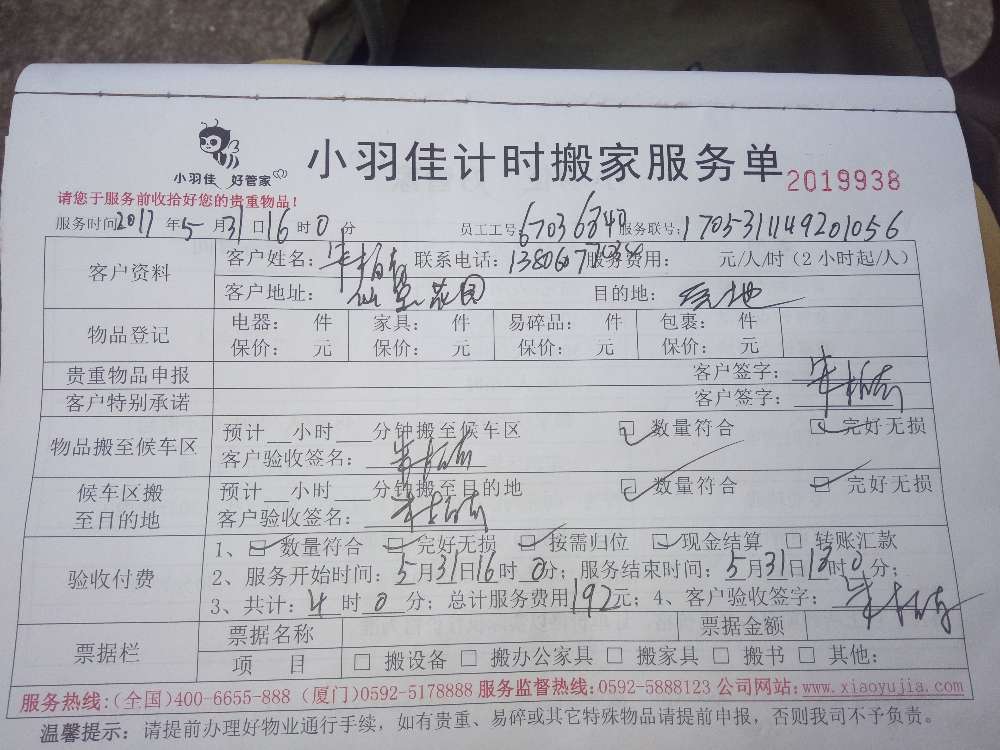 小羽佳 好管家
小羽佳计时搬家服务单 2019938
请您于服务前收拾好您的贵重物品！
服务时间2017年5月31日16时0分 员工工号67036840 服务联号:
客户资料 客户姓名: 联系电话: 服务费用: 元/人/时(2小时起/人)
客户地址: 花园 目的地:
物品登记 电器: 件 家具: 件 易碎品: 件 包裹: 件
保价: 元 保价: 元 保价: 元 保价: 元
贵重物品申报 客户签字:
客户特别承诺 客户签字:
物品搬至候车区 预计__小时___分钟搬至候车区 ☑ 数量符合 ☑ 完好无损
客户验收签名:
候车区搬至目的地 预计__小时___分钟搬至目的地 ☑ 数量符合 ☑ 完好无损
客户验收签名:
验收付费 1、☑ 数量符合 ☑ 完好无损 ☑ 按需归位 ☑ 现金结算 □ 转账汇款
2、服务开始时间: 5月31日16时0分; 服务结束时间: 5月31日 时0分;
3、共计: 4时0分; 总计服务费用192元; 4、客户验收签字:
票据栏 票据名称 票据金额
项 目 □ 搬设备 □ 搬办公家具 □ 搬家具 □ 搬书 □ 其他:
服务热线:(全国)400-6655-888 (厦门)0592-5178888 服务监督热线:0592-5888123 公司网站:www.xiaoyujia.com
温馨提示: 请提前办理好物业通行手续，如有贵重、易碎或其它特殊物品请提前申报，否则我司不予负责。